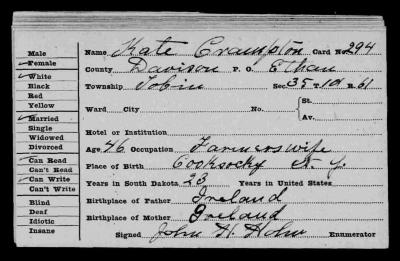 Male
Female
White
Black
Red
Yellow
Married
Single
Widowed
Divorced
Can Read
Can't Read
Can Write
Can't Write
Blind
Deaf
Idiotic
Insane
Name Kate Crampton Card No. 294
County Davison P. O. Ethan
Township Tobin Sec. 35 T 101 R. 61
Ward City No. St.
Av.
Hotel or Institution
Age 46 Occupation Farmers wife
Place of Birth Cooksocky N. Y.
Years in South Dakota 23 Years in United States
Birthplace of Father Ireland
Birthplace of Mother Ireland
Signed John H. Enumerator